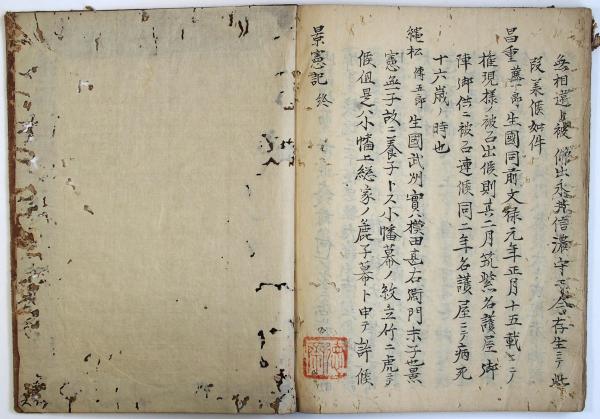 無相違被仰出永井信濃守ニ今ニ存生ニテ此
段美候如件
昌重藤一郎生國同前文禄元年正月十五歳ニテ
権現様ノ被召出候則其二月筑紫名護屋御
陣御供ニ被召連候同二年名護屋ニテ病死
十六歳ノ時也
縄松傳五郎生國武州實ハ横田甚右衛門末子也景
憲無子故ニ養子トス小幡幕ノ紋立竹ニ虎ヲ
候但是ハ小幡上総家ノ鹿子幕ト申テ許候
景憲記 終